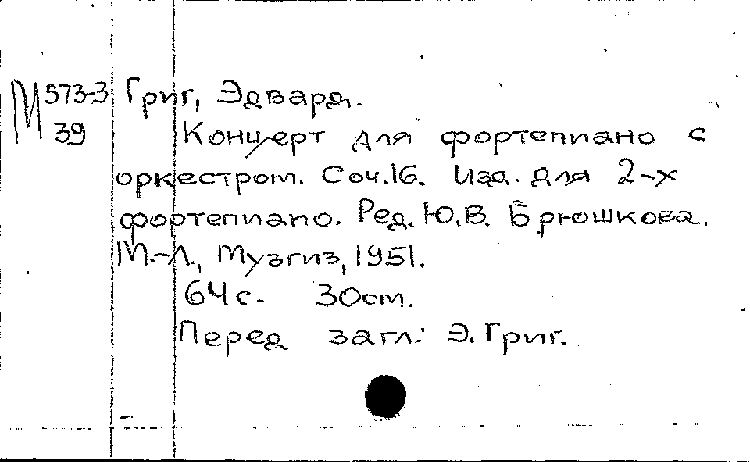 М 573-3 Григ, Эдвард.
39 Концерт для фортепиано с
оркестром. Соч.16. Изд. для 2-х
фортепиано. Ред. Ю.В. Брюшкова.
М.-Л., Музгиз, 1951.
64 с. 30 cm.
Перед загл: Э. Григ.